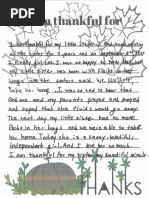 am thankful for
I am thankful for my little sister. I had been asking
a little sister for 3 years and on September
I finally got her. I was so happy to have her, but
my little sister was born with fluids in her
lungs and the doctors said we could not
take her home. I was so sad to hear that
me and my parents prayed and prayed
and hoped that the fluids would go away.
The next day my little sister had no more
fluids in her lungs and we were able to
take her home. Today she is a sassy, beautiful,
independent girl. And I her so much.
I am thankful for my sister, my beautiful miracle.
THANKS